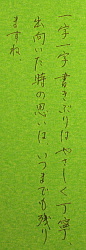 一字一字書きぶりはやさしく丁寧、
出向いた時の思いは、いつまでも残り
ますね